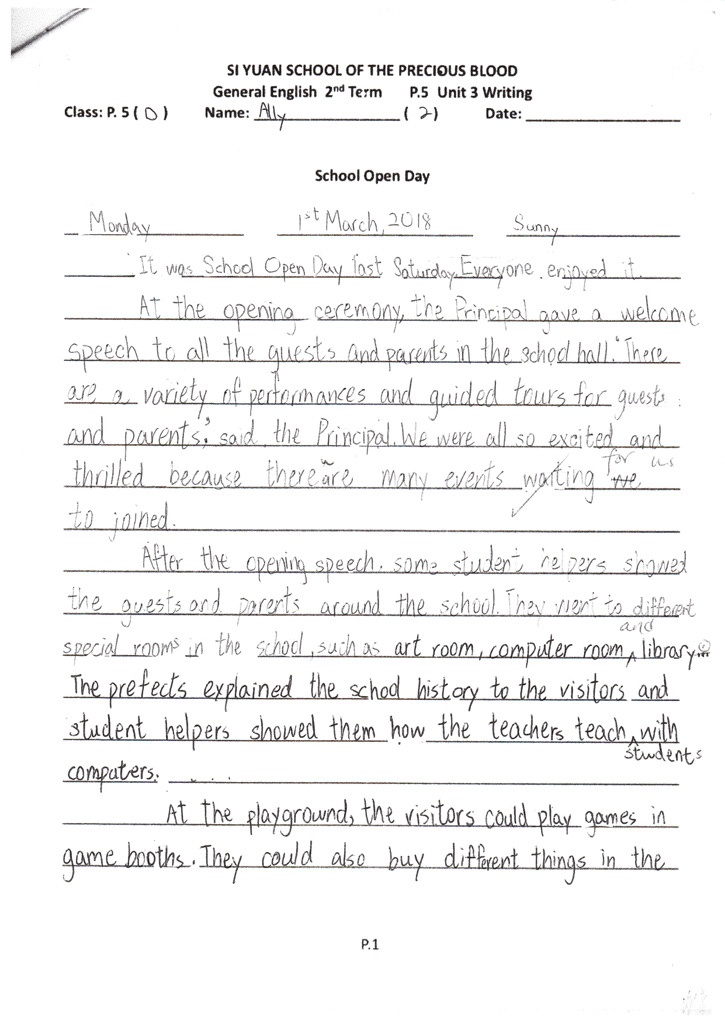 SI YUAN SCHOOL OF THE PRECIOUS BLOOD
General English 2nd Term P.5 Unit 3 Writing
Class: P. 5 ( D ) Name: Ally ( 2 ) Date:
School Open Day
Monday 1st March, 2018 Sunny
It was School Open Day last Saturday. Everyone enjoyed it.
At the opening ceremony, the Principal gave a welcome
speech to all the guests and parents in the school hall. 'There
are a variety of performances and guided tours for guests
and parents,' said the Principal. We were all so excited and
for us
thrilled because there are many events waiting we
to joined.
After the opening speech, some student helpers showed
the guests and parents around the school. They went to different
and
special rooms in the school, such as art room, computer room, library...
The prefects explained the school history to the visitors and
student helpers showed them how the teachers teach with
students
computers.
At the playground, the visitors could play games in
game booths. They could also buy different things in the
P.1